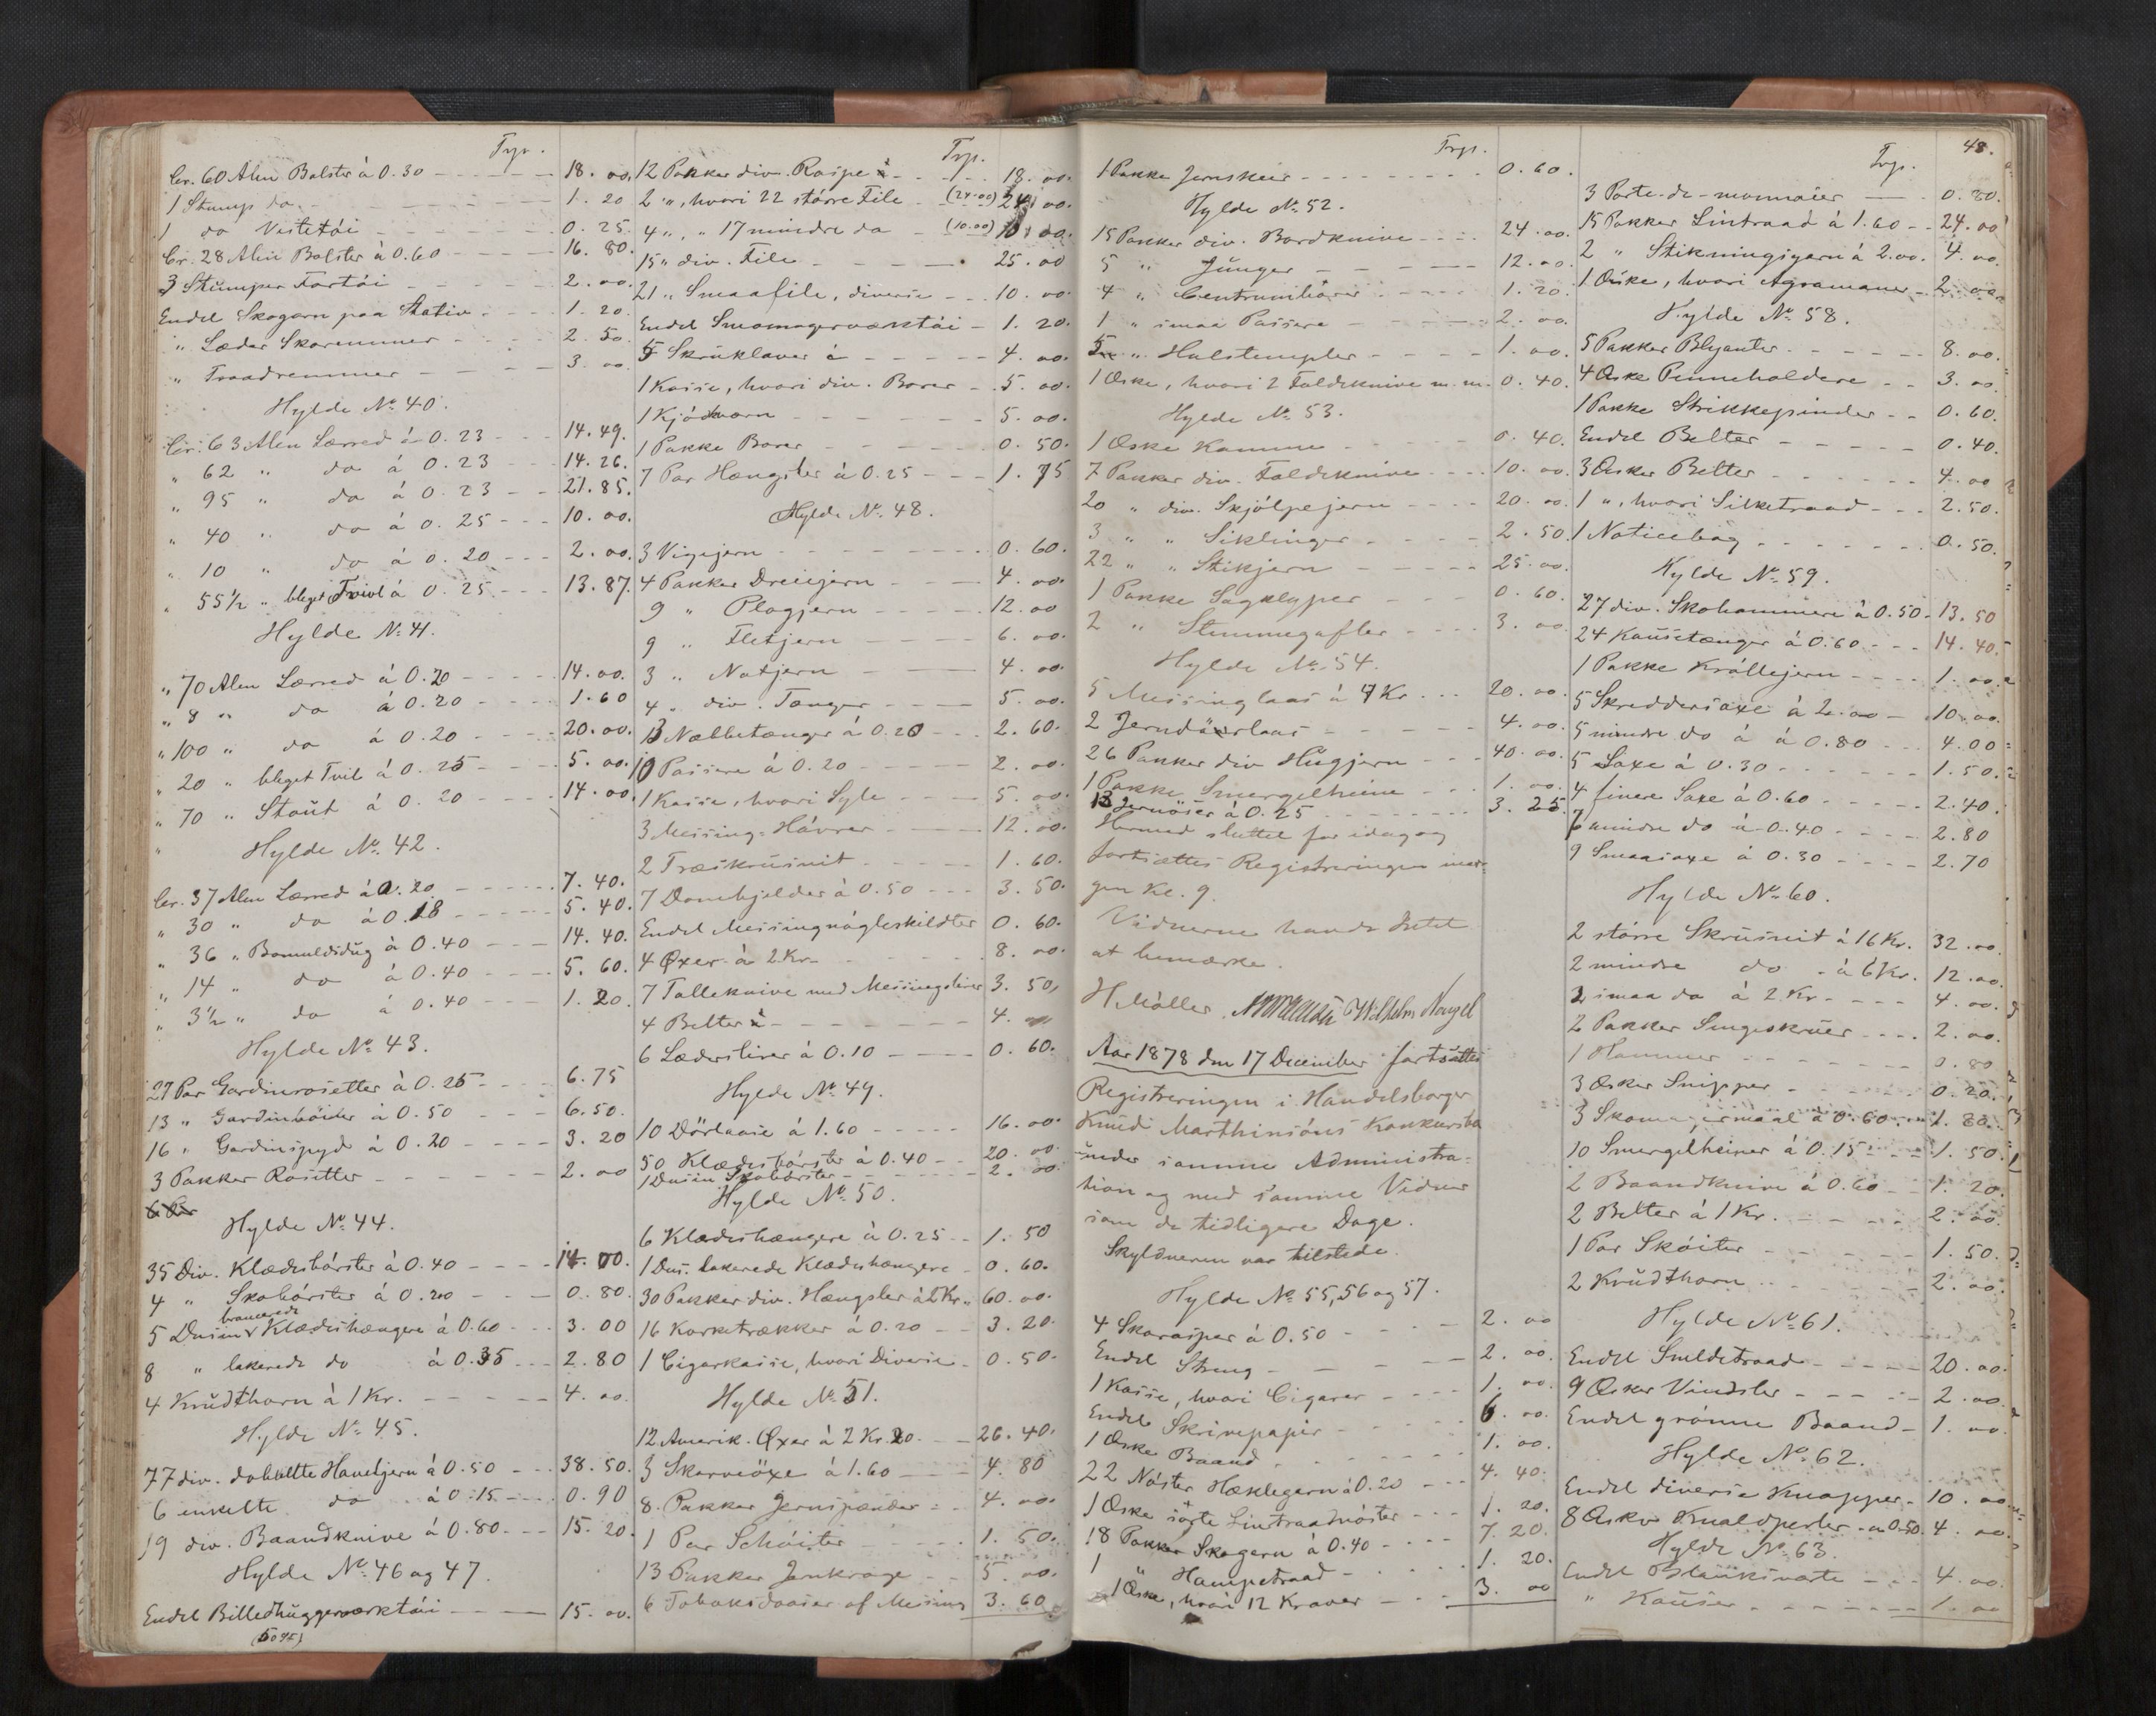 Trp.
Cr. 60 Alen Bolster à 0.30 18.00.
1 Stump do 1.20
1 do Vestetöi 0.25
Cr. 28 Alen Bolster à 0.60 16.80.
3 Stumper Fortöi 2.00.
Endel Skogarn paa Stativ 1.20.
" Læder Skoremmer 2.50.
" Traadremmer 3.00
Hylde No 40.
Cr. 63 Alen Lærred à 0.23 14.49.
" 62 " do à 0.23 14.26.
" 95 " do à 0.23 21.85.
" 40 " do à 0.25 10.00.
" 10 " do à 0.20 2.00.
" 55 1/2 " bleget Tvil à 0.25 13.87.
Hylde No 41.
" 70 Alen Lærred à 0.20 14.00.
" 8 " do à 0.20 1.60
" 100 " do à 0.20 20.00.
" 20 " bleget Tvil à 0.25 5.00.
" 70 " Stout à 0.20 14.00.
Hylde No 42.
Cr. 37 Alen Lærred à 0.20 7.40.
" 30 " do à 0.18 5.40.
" 36 " Bomuldsdug à 0.40 14.40.
" 14 " do à 0.40 5.60.
" 3 1/2 " do à 0.40 1.20.
Hylde No 43.
27 Par Gardinrosetter à 0.25 6.75
13 " Gardinhöider à 0.50 6.50.
16 " Gardinspyd à 0.20 3.20
3 Pakker Rosetter 2.00
Hylde No 44.
35 Div. Klædesbörster à 0.40 14.00.
4 " Skobörster à 0.20 0.80.
5 Dusin bronzerede Klædeshængere à 0.60 3.00
8 " lakerede do à 0.35 2.80
4 Krudthorn à 1 Kr. 4.00.
Hylde No 45.
77 div. dobbelte Hoveljern à 0.50 38.50.
6 enkelte do à 0.15 0.90
19 div. Baandknive à 0.80 15.20.
Hylde No 46 og 47.
Endel Billedhuggerværktöi 15.00.
Trp.
12 Pakker div. Raspe 18.00.
2 ", hvori 22 större File (24.00) 24.00.
4 ", " 17 mindre do (10.00) 10.00.
15 " div. File 25.00
21 " Smaafile, diverse 10.00.
Endel Skomagerværktöi 1.20.
5 Skruklaver à 4.00.
1 Kasse, hvori div. Borer 5.00.
1 Kjödkvarn 5.00.
1 Pakke Borer 0.50.
7 Par Hængsler à 0.25 1.75
Hylde No 48.
3 Vigejern 0.60.
4 Pakker Dreiejern 4.00.
9 " Plogjern 12.00
9 " Fletjern 6.00.
3 " Notjern 4.00.
4 " div. Tænger 5.00.
13 Næbbetænger à 0.20 2.60.
10 Passere à 0.20 2.00.
1 Kasse, hvori Syle 5.00.
3 Messing-Hövrer 12.00.
2 Træskrustik 1.60.
7 Dombjelder à 0.50 3.50.
Endel Messingnögleskildter 0.60.
4 Øxer à 2 Kr. 8.00.
7 Tolleknive med Messingslirer 3.50.
4 Belter 4.
6 Læderslirer à 0.10 0.60.
Hylde No 49.
10 Dörlaase à 1.60 16.00.
50 Klædesbörster à 0.40 20.00.
1 Dusin Skobörster 2.00.
Hylde No 50.
6 Klædeshængere à 0.25 1.50
1 Dus. lakerede Klædeshængere 0.60.
30 Pakker div. Hængsler à 2 Kr. 60.00.
16 Korketrækker à 0.20 3.20.
1 Cigarkasse, hvori Diverse 0.50.
Hylde No 51.
12 Amerik. Øxer à 2 Kr. 20 26.40.
3 Skarveöxe à 1.60 4.80
8 Pakker Jernspænder 4.00.
1 Par Schöiter 1.50.
13 Pakker Jernkroge 5.00.
6 Tobaksdaaser af Messing 3.60
Trp.
1 Pakke Jernskeer 0.60.
Hylde No 52.
15 Pakker div. Bordknive 24.00.
5 " Junger 12.00.
4 " Centrumbörer 1.20.
1 " smaa Passere 2.00.
5 " Hulstempler 1.00.
1 Æske, hvori 2 Foldeknive m.m. 0.40.
Hylde No 53.
1 Æske Kamme 0.40.
7 Pakker div. Foldeknive 10.00.
20 " div. Skjölpejern 20.00.
3 " " Siklinger 2.50.
22 " " Stikjern 25.00.
1 Pakke Sagklyper 0.60.
2 " Stemmegafler 3.00.
Hylde No 54.
5 Messinglaas à 4 Kr. 20.00.
2 Jerndörslaas 4.00.
26 Pakker div Hugjern 40.00.
1 Pakke Smergelhiene 1.00.
13 Jernöser à 0.25 3.25.
Hermed sluttet for idag og
fortsættes Registreringen mor-
gen Kl. 9.
Vidnerne havde Intet
at bemærke.
H Möller. Wilhelm Nagel
Aar 1878 den 17 December fortsattes
Registreringen i Handelsborger
Knud Marthinsöns Konkursbo
under samme Administra-
tion og med samme Vidner
som de tidligere Dage.
Skyldneren var tilstede.
Hylde No 55, 56 og 57.
4 Skoraspar à 0.50 2.00
Endel Streng 2.00.
1 Kasse, hvori Cigarer 1.00.
Endel Skrivepapir 6.00.
1 Æske Baand 1.00.
22 Nöster Hæklegarn à 0.20 4.40.
1 Æske sorte Lintraadnöster 1.20.
18 Pakker Skogarn à 0.40 7.20.
1 " Hampetraad 1.20.
1 Æske, hvori 12 Kraver 3.00
48.
Trp.
3 Porte-de-monnaier 0.80.
15 Pakker Lintraad à 1.60 24.00
2 " Stikningsgarn à 2.00. 4.00.
1 Æske, hvori Agramaner 2.00.
Hylde No 58.
5 Pakker Blyanter 8.00.
4 Æske Penneholdere 3.00.
1 Pakke Strikkepinder 0.60.
Endel Belter 0.40.
3 Æsker Belter 4.00
1 ", hvori Silketraad 2.50.
1 Noticebog 0.50.
Hylde No 59.
27 div. Skohammere à 0.50 13.50
24 Kousetænger à 0.60 14.40.
1 Pakke Kröllejern 1.00.
5 Skreddersaxe à 2.00 10.00.
5 mindre do à 0.80 4.00
5 Saxe à 0.30 1.50.
4 finere Saxe à 0.60 2.40.
7 mindre do à 0.40 2.80
9 Smaasaxe à 0.30 2.70
Hylde No 60.
2 större Skrustik à 16 Kr. 32.00.
2 mindre do à 6 Kr. 12.00.
2 smaa do à 2 Kr. 4.00.
2 Pakker Sengeskruer 2.00.
1 Hammer 0.80
3 Æsker Snipper 0.20.
3 Skomagermaal à 0.60 1.80.
10 Smergelheiner à 0.15 1.50.
2 Baandknive à 0.60 1.20.
2 Belter à 1 Kr. 2.00.
1 Par Sköiter 1.50.
2 Krudthorn 2.00.
Hylde No 61.
Endel Smeldetraad 20.00.
9 Æsker Vindsler 2.00.
Endel grönne Baand 1.00.
Hylde No 62.
Endel diverse Knapper 10.00.
8 Æsker Knaldperler à 0.50. 4.00.
Hylde No 63.
Endel Blanksværte 4.00.
" Kouser 1.00